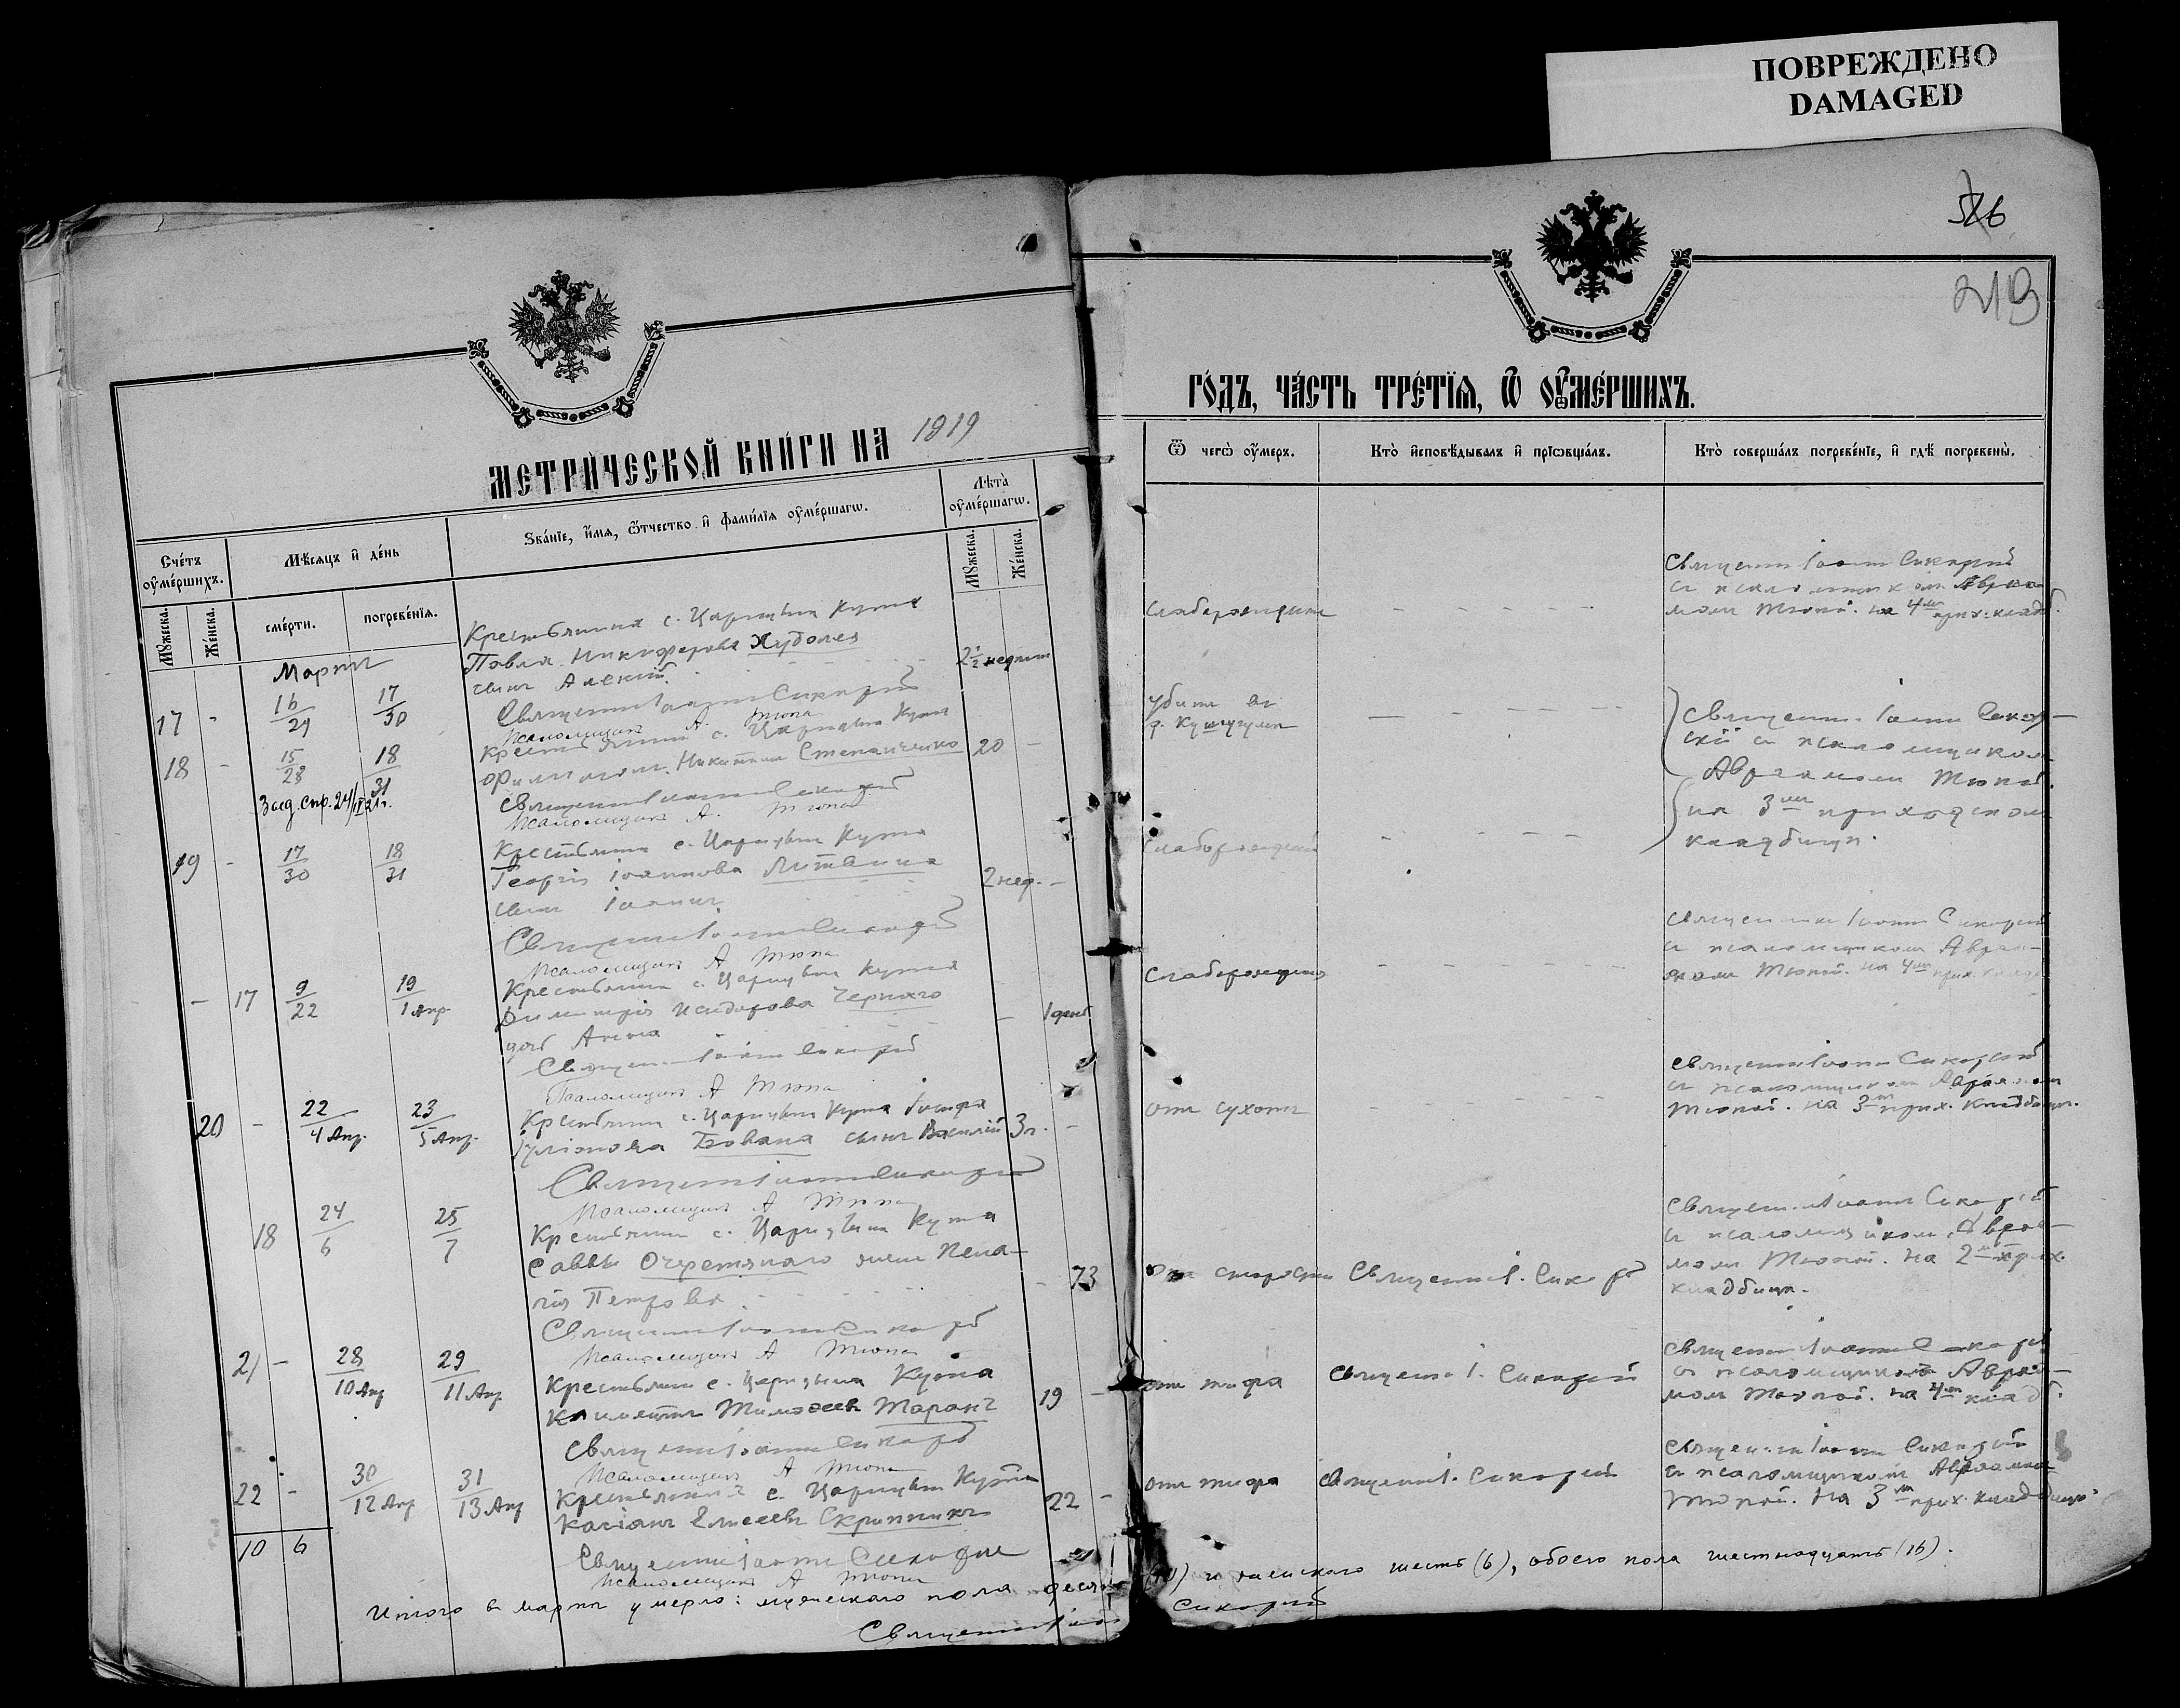 ПОВРЕЖДЕНО
DAMAGED
526
219
МЕТРИЧЕСКОЙ КНИГИ НА 1919
ГОДЪ, ЧАСТЬ ТРЕТІЯ, Ѿ ОУМЕРШИХЪ.
Счетъ оумершихъ.
Мѣсяцъ и день
Званіе, имя, ѿтчество и фамилія оумершагѡ.
Лѣта оумершагѡ.
Мужеска.
Женска.
смерти.
погребенія.
Мужеска.
Женска.
Ѿ чегѡ оумеръ.
Кто исповѣдывалъ и пріѡбщалъ.
Кто совершалъ погребеніе, и гдѣ погребены.
Мартъ
17 - 16/29 17/30
Крестьянина с. Царицына Кута
Павла Никифорова Худолея
сынъ Алексій
2½ недѣли
Священникъ Іоаннъ Сикорскій
Псаломщикъ А. Тюпа
Слаборожденія
Священ. Іоаннъ Сикорскій
съ псаломщикомъ Авраа-
момъ Тюпой. на 4мъ прих. кладб.
18 - 15/28 18/31
Крестьянинъ с. Царицына Кута
Никитинъ Степанченко
20 -
Священникъ Іоаннъ Сикорскій
Псаломщикъ А. Тюпа
убитъ въ
р. Кушугумъ
Священ. Іоаннъ Сикор-
скій съ псаломщикомъ
Авраамомъ Тюпой.
на 3мъ приходскомъ
кладбищѣ.
19 - 17/30 18/31
Крестьянина с. Царицына Кута
Георгія Іоаннова Литвина
сынъ Іоаннъ
2 нед. -
Священникъ Іоаннъ Сикорскій
Псаломщикъ А Тюпа
Слаборожденія
- 17 9/22 19/1 Апр.
Крестьянина с. Царицына Кута
Димитрія Исидорова Чернаго
дочь Анна
- 1 день
Священ. Іоаннъ Сикорскій
Псаломщикъ А Тюпа
Слаборожденія
Священникъ Іоаннъ Сикорскій
съ псаломщикомъ Авраа-
момъ Тюпой. на 4мъ прих. кладб.
20 - 22/4 Апр. 23/5 Апр.
Крестьянина с. Царицына Кута Іосифа
Бована сынъ Василій
3 г. -
Священникъ Іоаннъ Сикорскій
Псаломщикъ А Тюпа
отъ сухотъ
Священ. Іоаннъ Сикорскій
съ псаломщикомъ Авраамомъ
Тюпой. на 3мъ прих. кладбищѣ.
18 24/6 25/7
Крестьянина с. Царицына Кута
Саввы Очеретянаго жена Пела-
гія Петрова
- 73
Священникъ Іоаннъ Сикорскій
Псаломщикъ А Тюпа
отъ старости
Священ. І. Сикорскій
Священ. Іоаннъ Сикорскій
съ псаломщикомъ Авраа-
момъ Тюпой. на 2мъ прих.
кладбищѣ.
21 - 28/10 Апр 29/11 Апр
Крестьянинъ с. Царицына Кута
Климентъ Тимоѳеевъ Таранъ
19 -
Священникъ Іоаннъ Сикорскій
Псаломщикъ А Тюпа
отъ тифа
Священ. І. Сикорскій
Священ. Іоаннъ Сикорскій
съ псаломщикомъ Авраа-
момъ Тюпой. на 4мъ кладб.
22 - 30/12 Апр 31/13 Апр
Крестьянинъ с. Царицына Кута
Касіанъ Елисеевъ Скрипникъ
22 -
Священникъ Іоаннъ Сикорскій
Псаломщикъ А Тюпа
отъ тифа
Священ. І. Сикорскій
Священ. Іоаннъ Сикорскій
съ псаломщикомъ Авраамомъ
Тюпой. На 3мъ прих. кладбищѣ.
10 6
Итого въ мартѣ умерло: мужескаго пола десять (10) и женскаго шесть (6), обоего пола шестнадцать (16).
Священникъ Іоаннъ Сикорскій